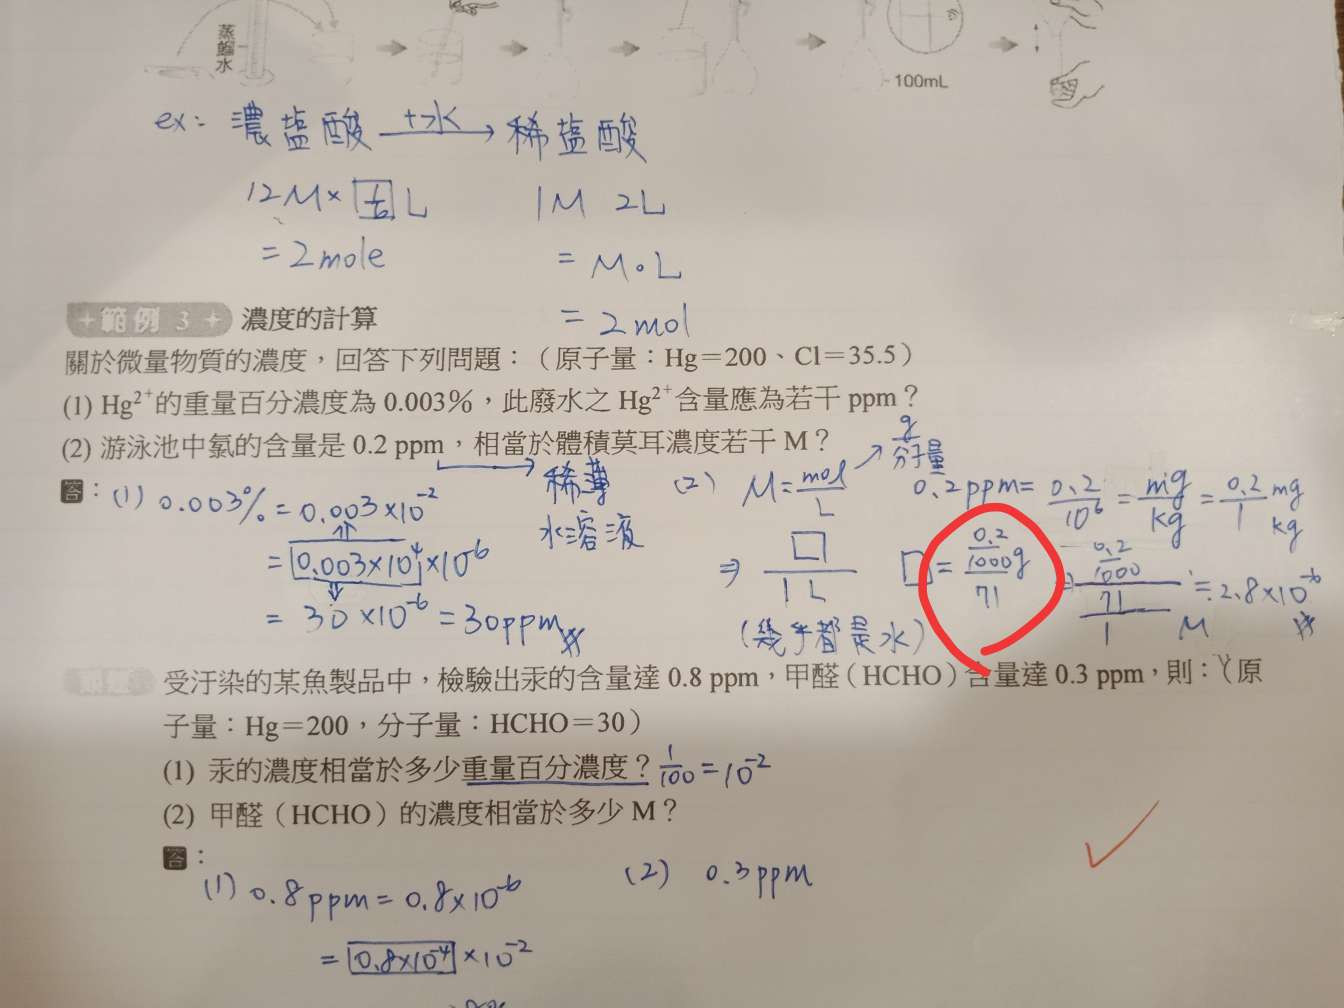 蒸餾水
100mL
ex: 濃塩酸 +水→ 稀塩酸
12M× 1/6 L 1M 2L
= 2mole = M·L
= 2mol
範例 3 濃度的計算
關於微量物質的濃度，回答下列問題：（原子量：Hg＝200、Cl＝35.5）
(1) Hg²⁺的重量百分濃度為 0.003％，此廢水之 Hg²⁺含量應為若干 ppm？
(2) 游泳池中氯的含量是 0.2 ppm，相當於體積莫耳濃度若干 M？
答：(1) 0.003% = 0.003×10⁻²
= 0.003×10⁴ ×10⁻⁶
= 30 ×10⁻⁶ = 30ppm
→ 稀薄
水溶液
(2) M = mol/L → g/分子量
0.2ppm = 0.2/10⁶ = mg/kg = 0.2/1 mg/kg
⇒ □/1L □ = 0.2/1000 g/71 ⇒ 0.2/1000/71/1 ≒ 2.8×10⁻⁶ M
(幾乎都是水)
受汙染的某魚製品中，檢驗出汞的含量達 0.8 ppm，甲醛（HCHO）含量達 0.3 ppm，則：（原
子量：Hg＝200，分子量：HCHO＝30）
(1) 汞的濃度相當於多少重量百分濃度？ 1/100 = 10⁻²
(2) 甲醛（HCHO）的濃度相當於多少 M？
答：
(1) 0.8ppm = 0.8×10⁻⁶ (2) 0.3ppm
= 0.8×10⁻⁴ ×10⁻²